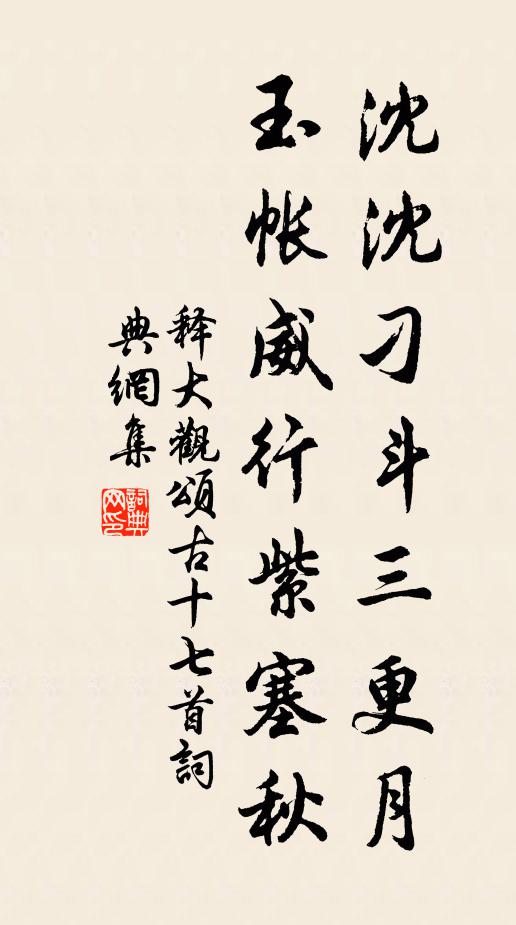 沈沈刁斗三更月
玉帐威行紫塞秋
释大觀頌古十七首詞
典網集
詞典
网印